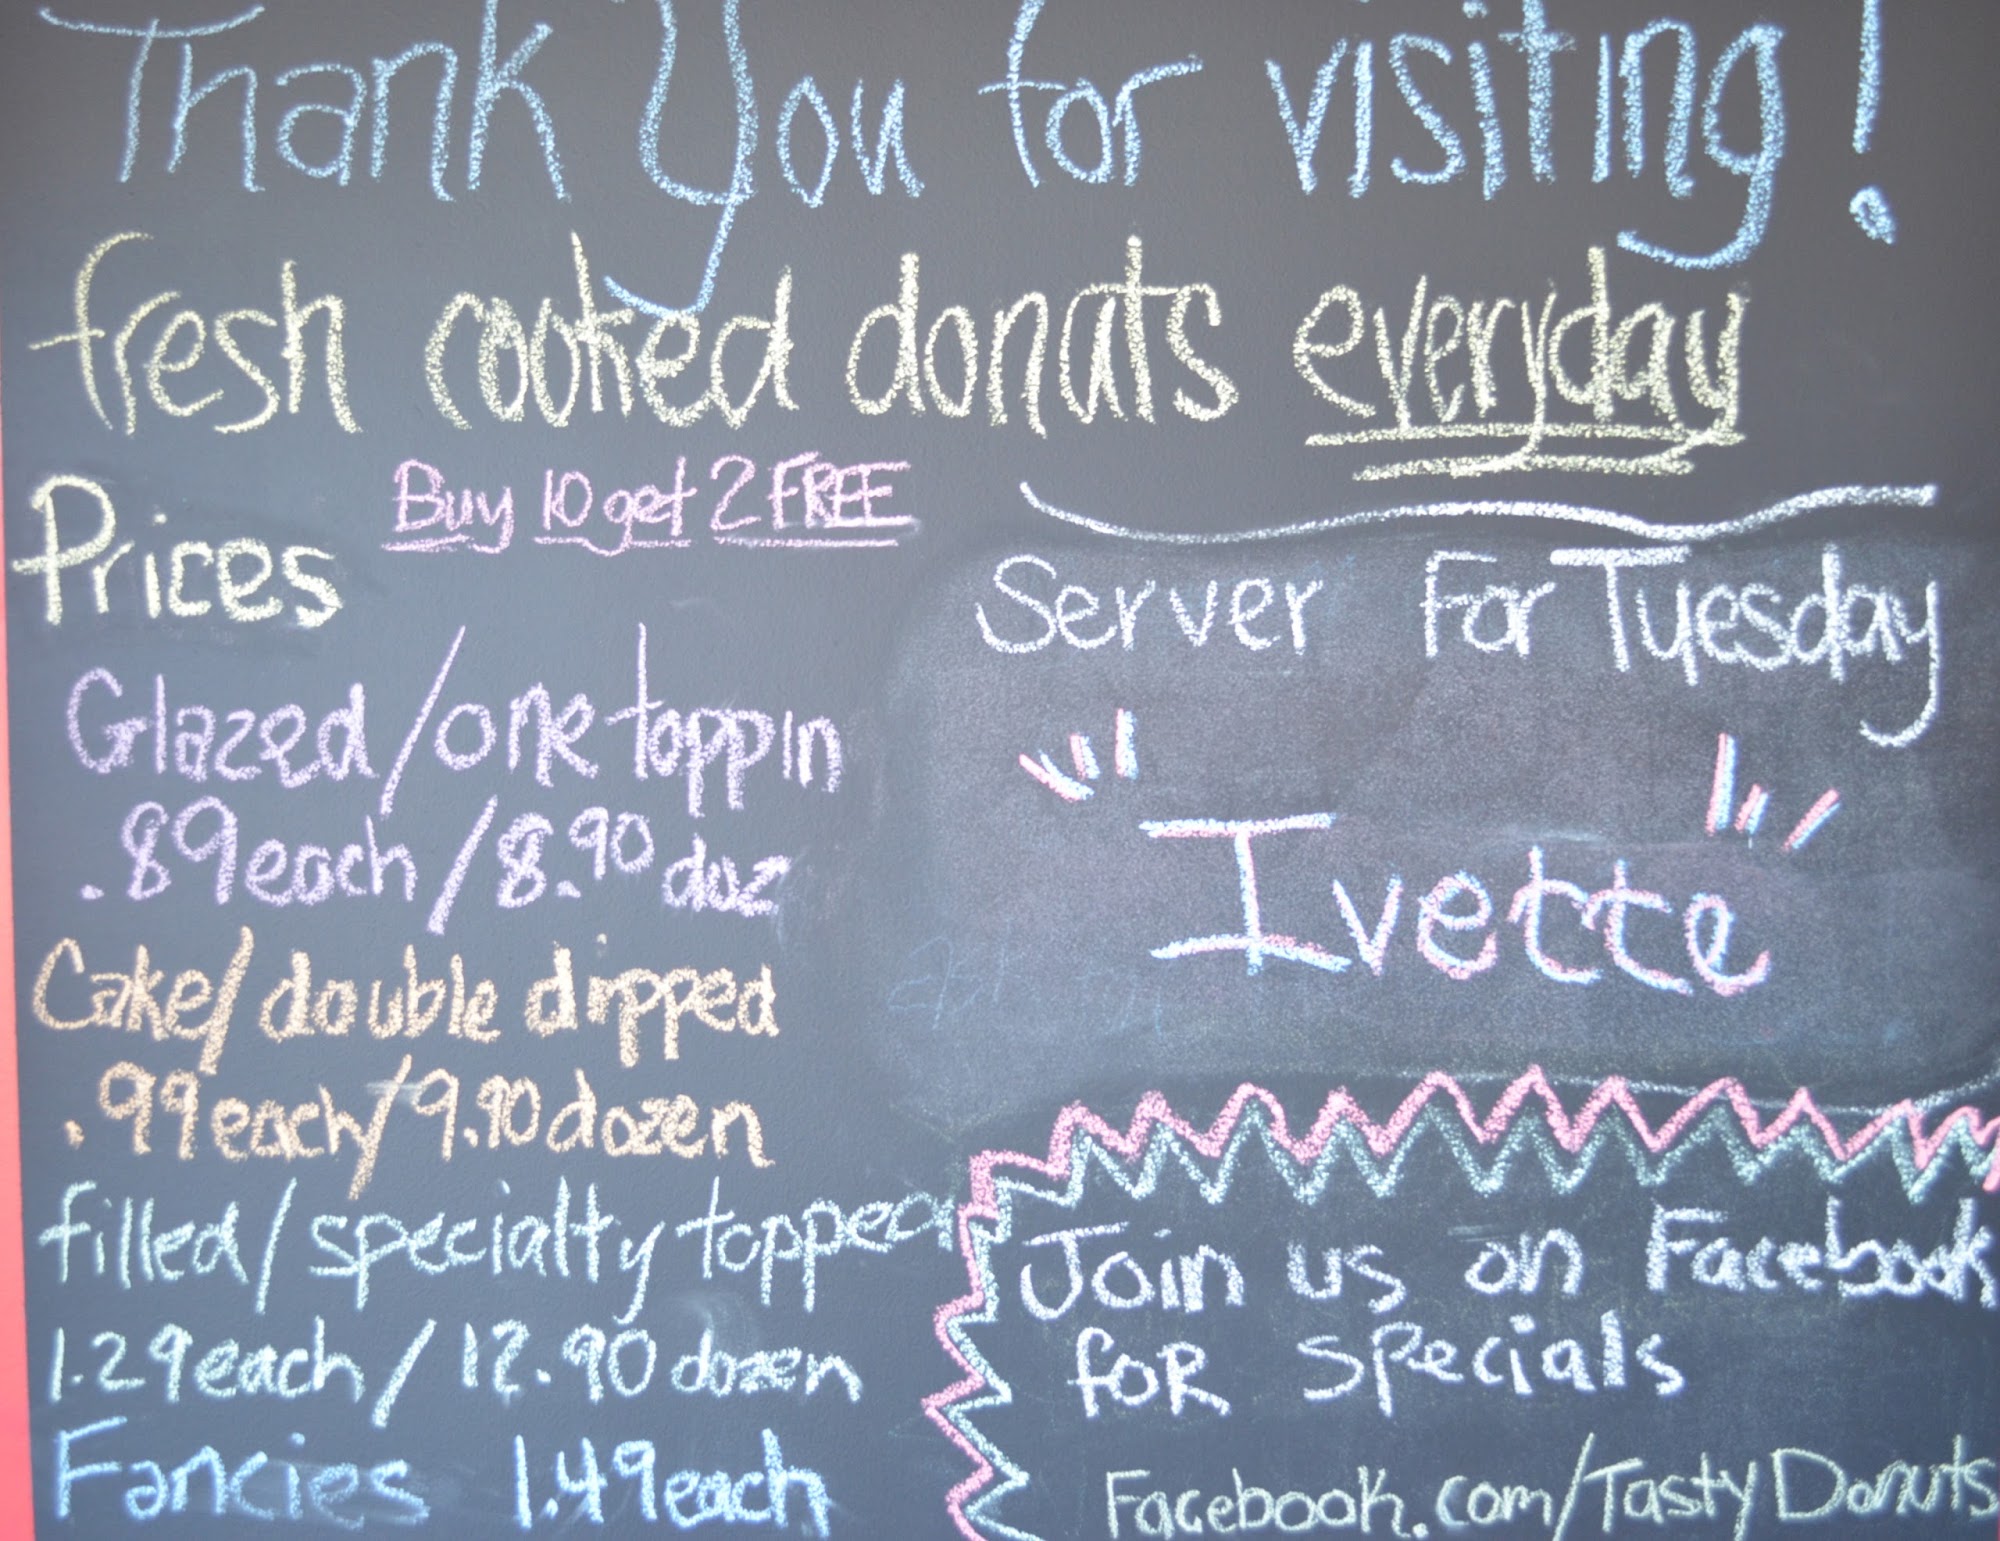 Thank you for visiting!
fresh cooked donats everyday
Prices
Buy 10 get 2 FREE
Glazed/one toppin
.89 each/8.90 doz
Cake/double dipped
.99 each/9.90 dozen
filled/specialty topped
1.29 each/12.90 dozen
Fancies 1.49 each
Server For Tuesday
"Ivette"
Join us on Facebook
for specials
Facebook.com/TastyDonuts